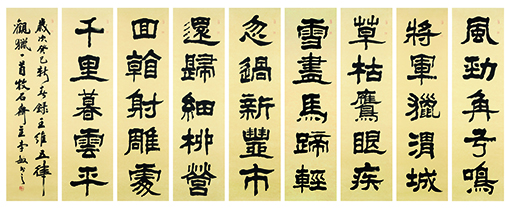 風勁角弓鳴
將軍獵渭城
草枯鷹眼疾
雪盡馬蹄輕
忽過新豐市
還歸細柳營
回看射雕處
千里暮雲平
歲次癸巳新春錄王維五律
觀獵一首牧石齋主李敏書